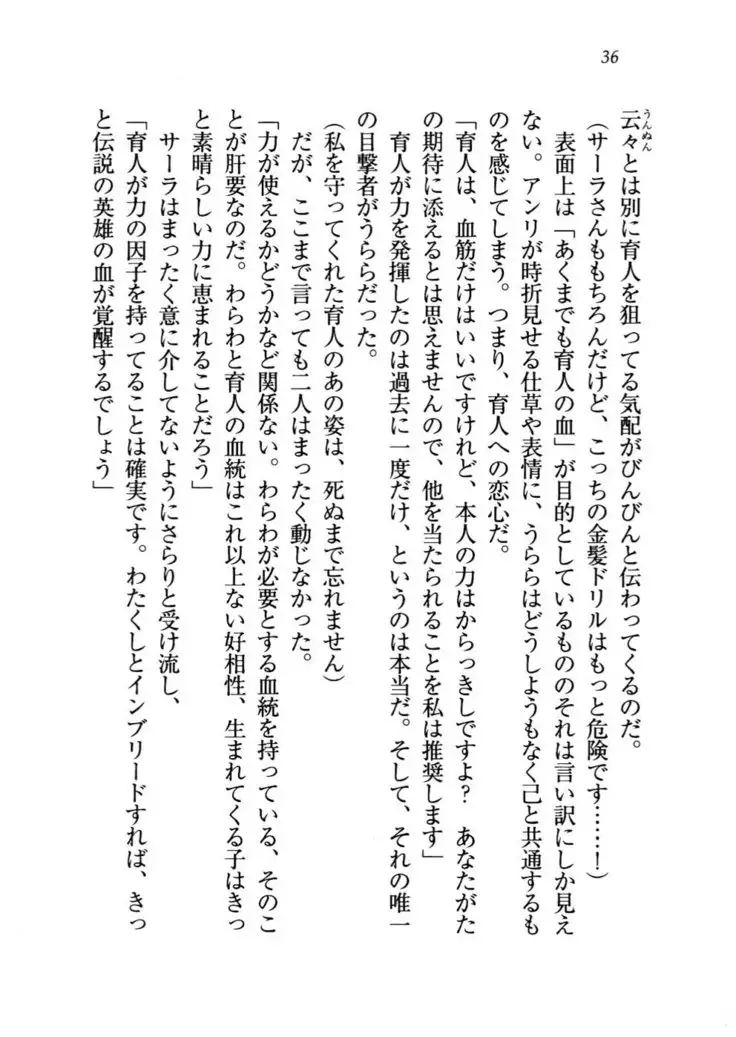 36
云々とは別に育人を狙ってる気配がびんびんと伝わってくるのだ。
(サーラさんももちろんだけど、こっちの金髪ドリルはもっと危険です……!)
表面上は「あくまでも育人の血」が目的としているもののそれは言い訳にしか見え
ない。アンリが時折見せる仕草や表情に、うららはどうしようもなく己と共通するも
のを感じてしまう。つまり、育人への恋心だ。
「育人は、血筋だけはいいですけれど、本人の力はからっきしですよ? あなたがた
の期待に添えるとは思えませんので、他を当たられることを私は推奨します」
育人が力を発揮したのは過去に一度だけ、というのは本当だ。そして、それの唯一
の目撃者がうららだった。
(私を守ってくれた育人のあの姿は、死ぬまで忘れません)
だが、ここまで言っても二人はまったく動じなかった。
「力が使えるかどうかなど関係ない。わらわが必要とする血統を持っている、そのこ
とが肝要なのだ。わらわと育人の血統はこれ以上ない好相性、生まれてくる子はきっ
と素晴らしい力に恵まれることだろう」
サーラはまったく意に介してないようにさらりと受け流し、
「育人が力の因子を持ってることは確実です。わたくしとインブリードすれば、きっ
と伝説の英雄の血が覚醒するでしょう」
うんぬん